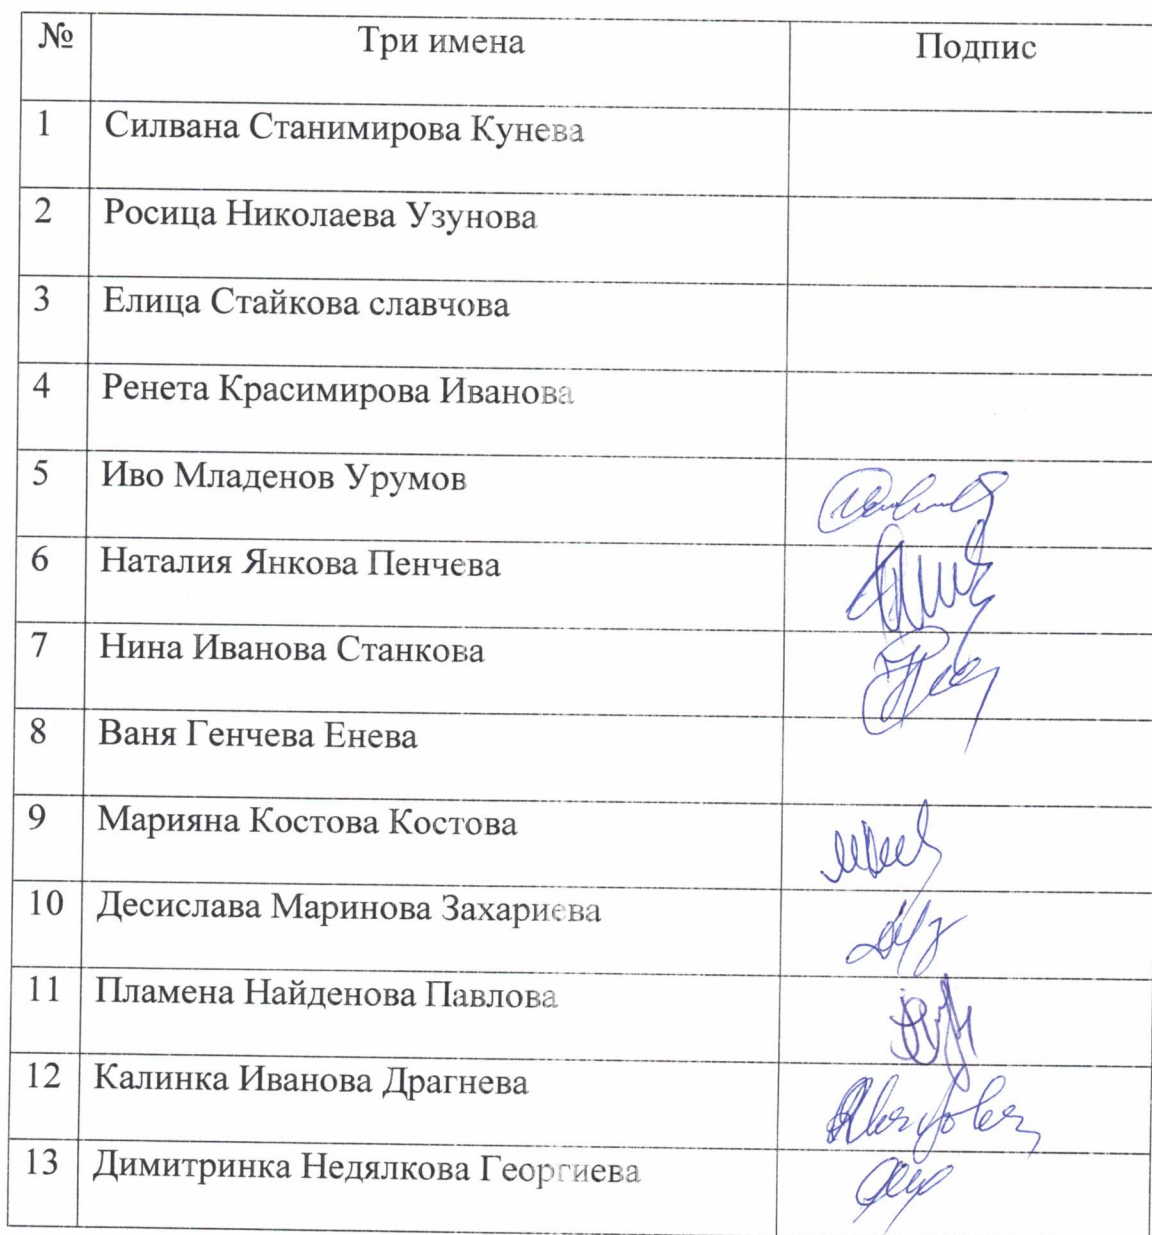 № Три имена Подпис
1 Силвана Станимирова Кунева
2 Росица Николаева Узунова
3 Елица Стайкова славчова
4 Ренета Красимирова Иванова
5 Иво Младенов Урумов
6 Наталия Янкова Пенчева
7 Нина Иванова Станкова
8 Ваня Генчева Енева
9 Марияна Костова Костова
10 Десислава Маринова Захариева
11 Пламена Найденова Павлова
12 Калинка Иванова Драгнева
13 Димитринка Недялкова Георгиева